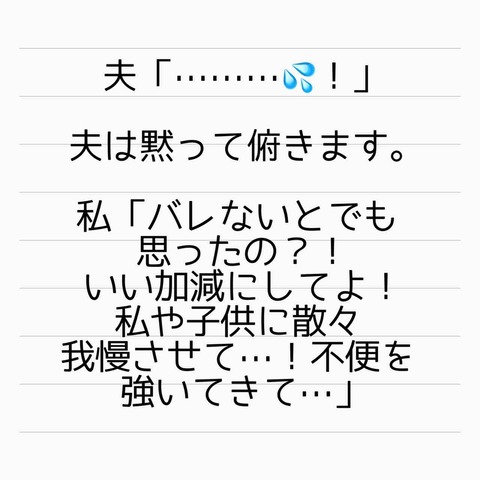 夫「………💦！」
夫は黙って俯きます。
私「バレないとでも
思ったの？！
いい加減にしてよ！
私や子供に散々
我慢させて…！不便を
強いてきて…」